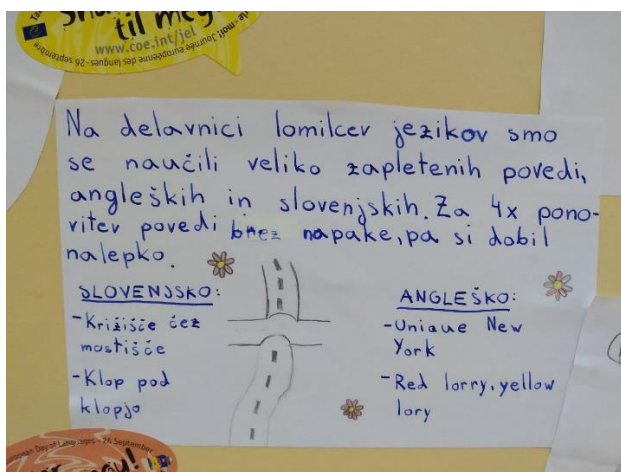 til meg!
www.coe.int/jel
Na delavnici lomilcev jezikov smo
se naučili veliko zapletenih povedi,
angleških in slovenjskih. Za 4x pono-
vitev povedi brez napake, pa si dobil
nalepko.
SLOVENJSKO:
-Križišče čez
mostišče
-Klop pod
klopjo
ANGLEŠKO:
-Uniaue New
York
-Red lorry, yellow
lory
European Day of Languages - 26 September